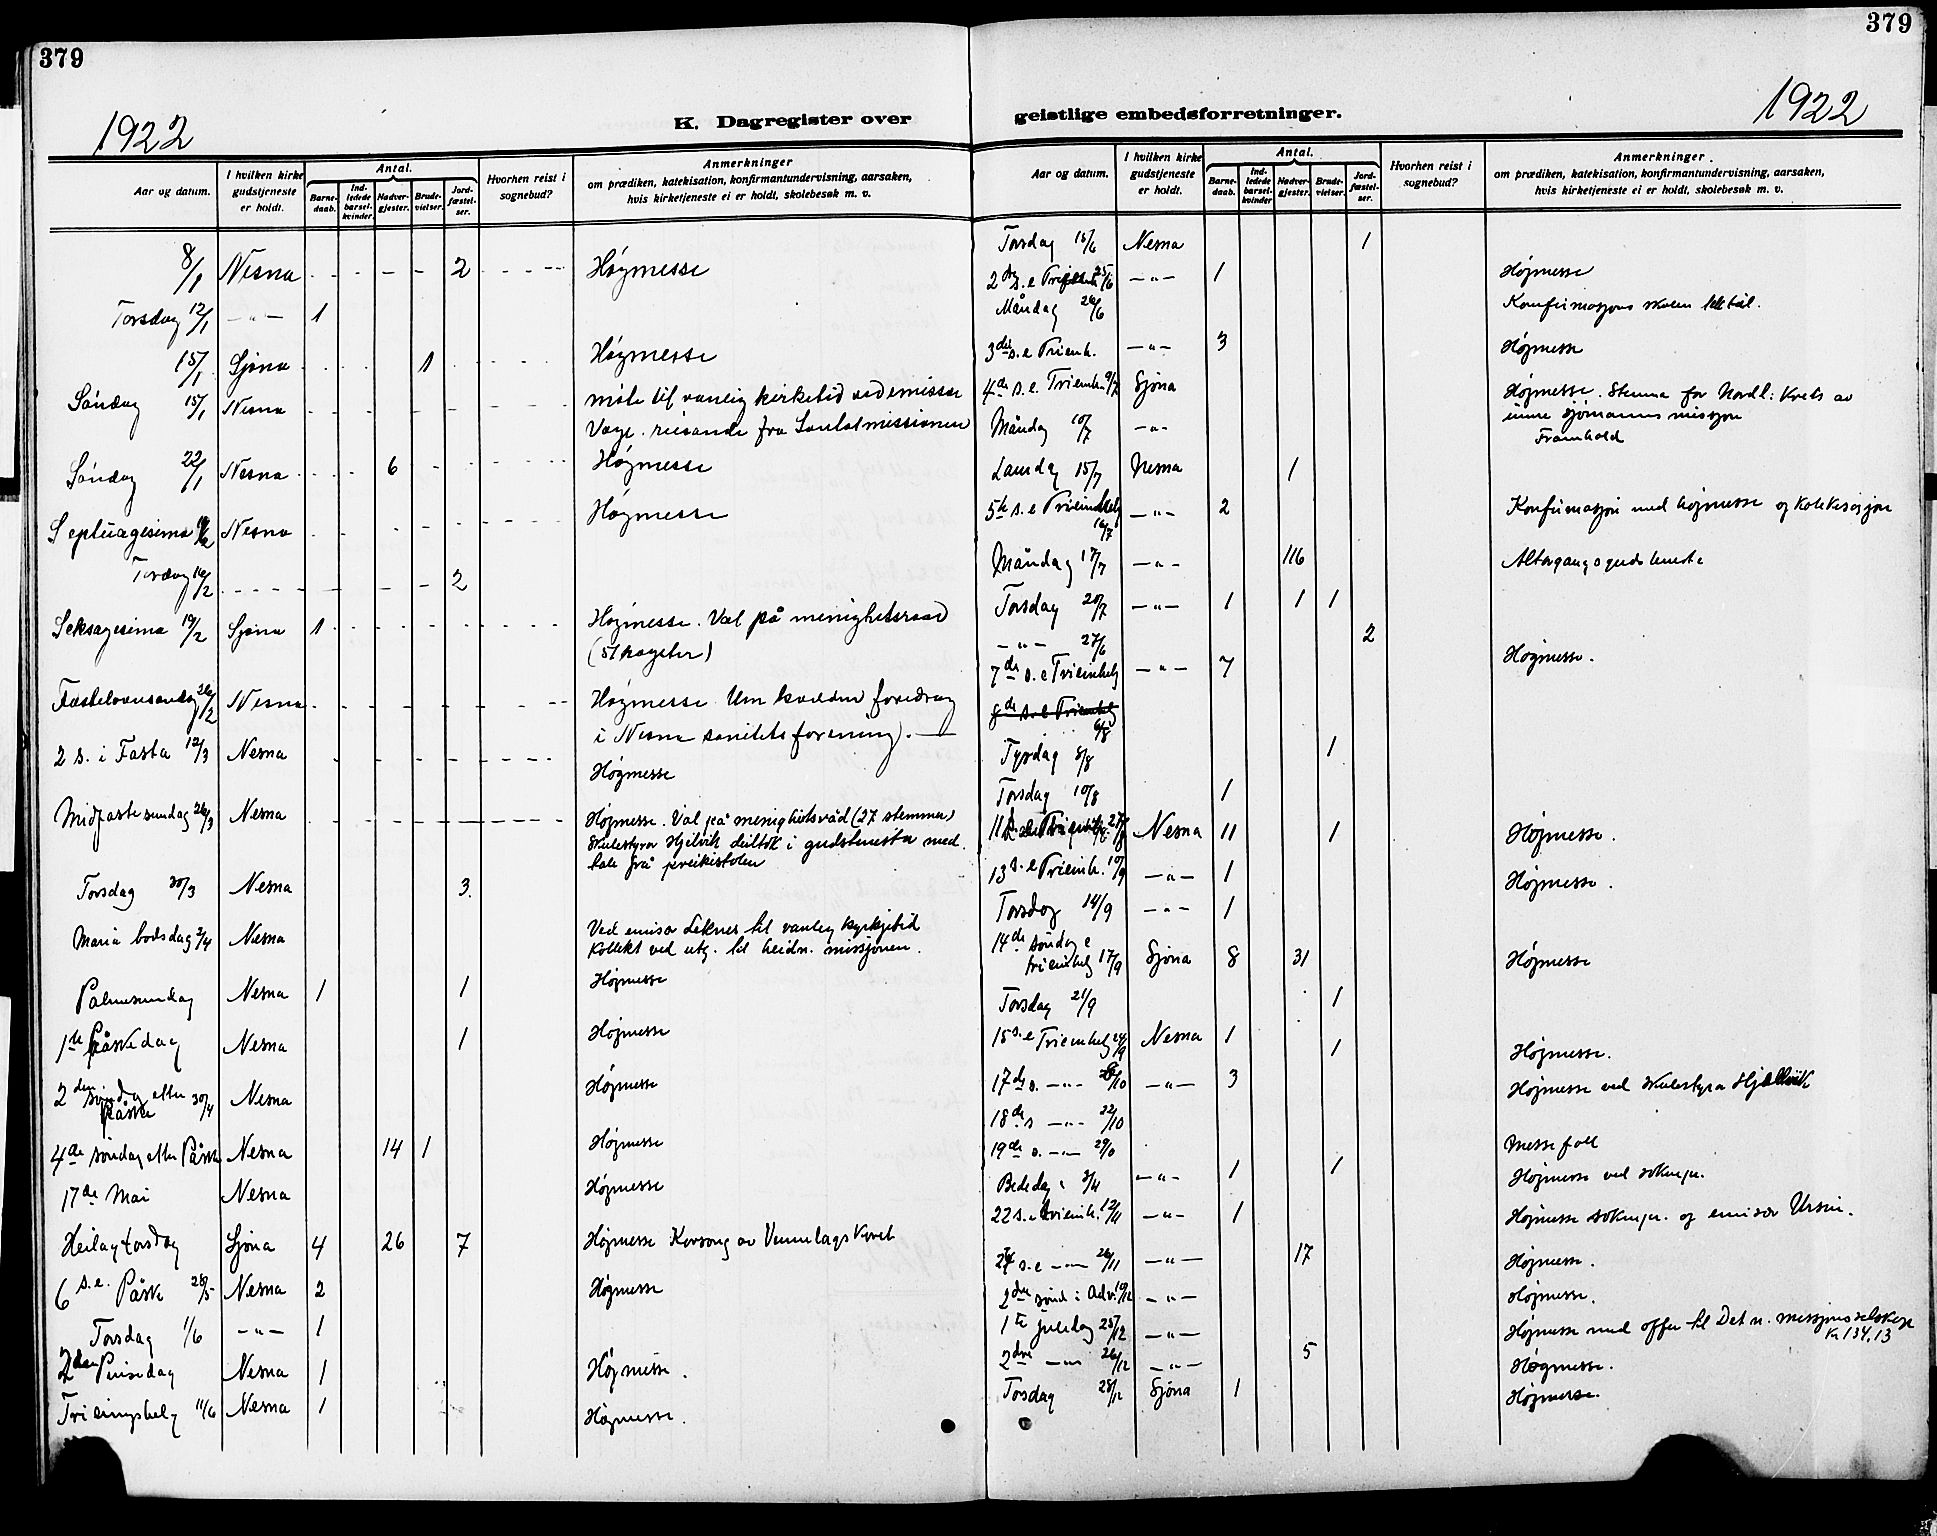 379
379
1922
K. Dagregister over
geistlige embedsforretninger.
1922
Aar og datum.
I hvilken kirke gudstjeneste er holdt.
Antal.
Barne-daab.
Ind-ledede barsel-kvinder.
Nadver-gjester.
Brude-vielser.
Jord-fæstel-ser.
Hvorhen reist i sognebud?
Anmerkninger
om prædiken, katekisation, konfirmantundervisning, aarsaken,
hvis kirketjeneste ei er holdt, skolebesøk m. v.
8/1 Nesna 2 Høgmesse
Torsdag 12/1 — " — 1
15/1 Sjona 1 Høgmesse
Søndag 15/1 Nesna møte til vanlig kirketid ved emissær
reisande fra Santalmissionen
Søndag 22/1 Nesna 6 Høgmesse
Septuagesima Nesna Høgmesse
Torsdag 16/2 2
Seksagesima 19/2 Sjona 1 Høgmesse. Val på menighetsraad
26/2 Nesna Høgmesse Um kvelden foredrag
i Nesna sanitetsforening.
2 s. i Fasta 12/3 Nesna Høgmesse
Midfastesundag 26/3 Nesna Høgmesse. Val på menighetsråd (27 stemmer)
Skulestyrar Hjelvik deiltok i gudstenesta med
tale frå preikestolen
Torsdag 30/3 Nesna 3
Maria bodsdag 2/4 Nesna Ved emisær til vanleg kyrkjetid
Kollekt ved utg. til heidn. missjonen.
Palmesundag Nesna 1 1 Høgmesse
1ste Påskedag Nesna 1 Høgmesse
2den søndag etter Påske 30/4 Nesna Høgmesse
4de søndag etter Påske Nesna 14 1 Høgmesse
17de Mai Nesna Høgmesse
Heilag torsdag Sjona 4 26 7 Høgmesse Korsong av
6 s.e. Påske 28/5 Nesna 2 Høgmesse
Torsdag 1/6 — " — 1
2den Pinsedag Nesna 1 Høgmesse.
11/6 Nesna 1 Høgmesse.
Aar og datum.
I hvilken kirke gudstjeneste er holdt.
Antal.
Barne-daab.
Ind-ledede barsel-kvinder
Nadver-gjester.
Brude-vielser.
Jord-fæstel-ser.
Hvorhen reist i sognebud?
Anmerkninger.
om prædiken, katekisation, konfirmantundervisning, aarsaken,
hvis kirketjeneste ei er holdt, skolebesøk m. v.
Torsdag 15/6 Nesna 1
25/6 — " — 1 Høgmesse
Måndag 26/6 Konfirmasjons skolen
3die s. e Trieinh. — " — 3 Høgmesse
4de s. e. 9/7 Sjona Høgmesse. Stemna for Nordl. Krets av
indre sjømannsmissjon
Måndag 10/7 — " — Framhald
Laurdag 15/7 Nesna 1
5te s. e 16/7 — " — 2 Konfirmasjon med høgmesse og
Måndag 17/7 — " — 116 Altargangsgudsteneste
Torsdag 20/7 — " — 1 1 1
— " — 27/6 2
7de s. e Trieinhelg — " — 7 Høgmesse.
8de s. e Trieinhelg 6/8
Tysdag 8/8 1
Torsdag 10/8 1
Nesna 11 1 Høgmesse.
13 s. e Trieinh. 10/9 — " — 1 Høgmesse.
Torsdag 14/9 — " — 1
14de søndag e trieinhelg 17/9 Sjona 8 31 Høgmesse
Torsdag 21/9 1
15 s. e Trieinhelg 24/9 Nesna 1 1 Høgmesse.
17de s. — " — — " — 3 Høgmesse ved skulestyrar
18de s — " — 22/10
19de s. — " — Messefall
Bededag — " — 1 1 Høgmesse ved soknepr.
22 s. e trieinh. 12/11 — " — 1 Høgmesse soknepr. og emisær
24 s. e — " — 26/11 — " — 17 Høgmesse.
2dre sønd i Adv. 10/12 — " — Høgmesse.
1te juledag 25/12 — " — Høgmesse med offer til Det n. missjonsselskap
Kr 134,13
2dre — " — 26/12 — " — 5 Høgmesse.
Torsdag 28/12 Sjona 1 Høgmesse.